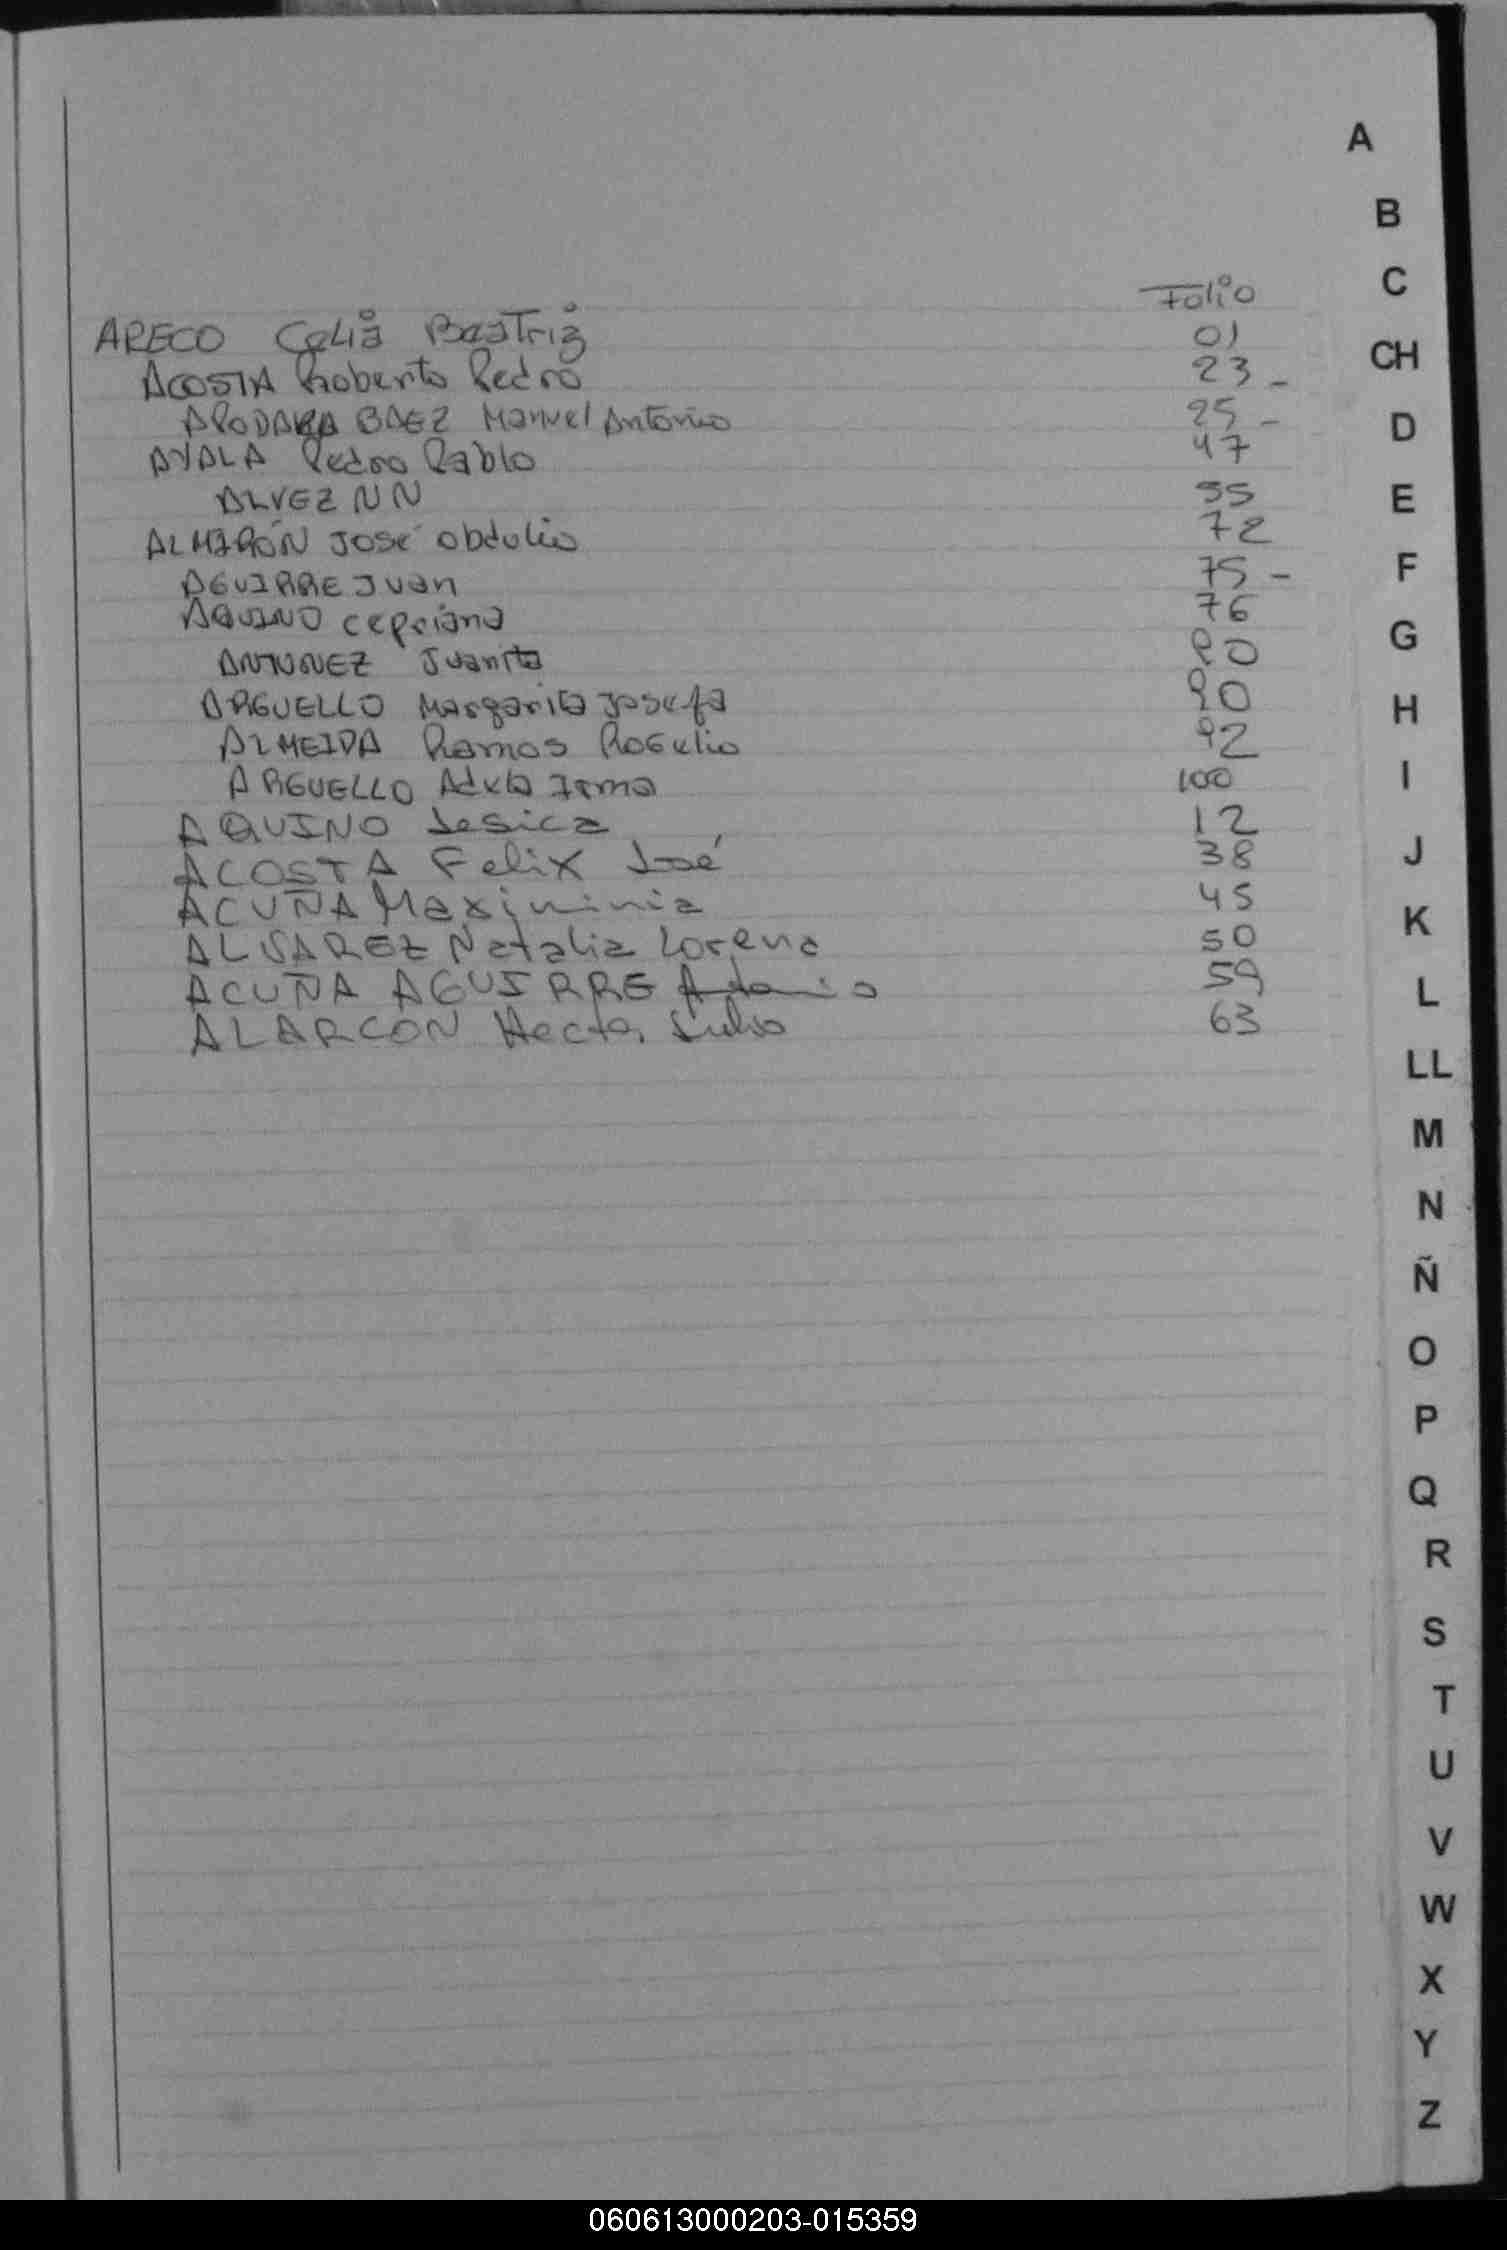 Folio
ARECO Celia Beatriz 01
ACOSTA Roberto Pedro 23 -
APODARA BAEZ Manuel Antonio 25 -
AYALA Pedro Pablo 47
ALVEZ NN 55
ALMIRÓN José Obdulio 72
AGUIRRE Juan 75 -
AQUINO Cepriana 76
ANTUNEZ Juanita 80
ARGUELLO Margarita Josefa 90
ALMEIDA Ramos Rogelio 92
ARGUELLO Adela Irma 100
AQUINO Jesica 12
ACOSTA Felix José 38
ACUÑA Maximinia 45
ALVAREZ Natalia Lorena 50
ACUÑA AGUIRRE Antonio 59
ALARCON Hector Julio 63
A
B
C
CH
D
E
F
G
H
I
J
K
L
LL
M
N
Ñ
O
P
Q
R
S
T
U
V
W
X
Y
Z
060613000203-015359